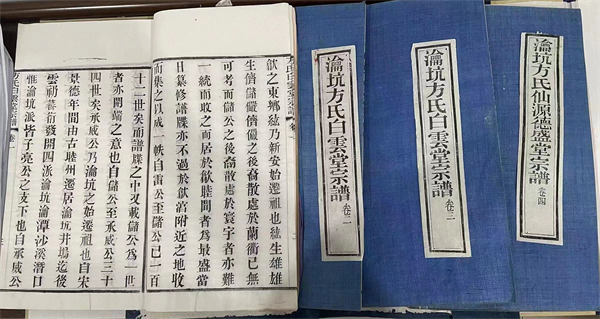 瀹坑方氏仙源德盛堂宗譜 卷四
瀹坑方氏白雲堂宗譜 卷三
瀹坑方氏白雲堂宗譜 卷二
方氏白雲堂宗譜 卷
歙之東鄉紘乃新安始遷祖也紘生雄雄
生儕儲儼儼之後裔散處於蘭衢已無
可考而儲公之後裔散處於寰宇者亦難
一統而收之而居於歙睦間者爲最盛當
日纂修譜牒亦不過於歙富附近之地收
而集之以成一帙自雷公至儲公已一百
十二世矣而譜牒之中又載儲公爲一世
者亦開端之意也自儲公至承威公三十
四世矣承威公乃瀹坑之始遷祖也自宋
景德年間由古睦州遷居瀹坑井塢迄後
雲礽蕃衍發開四派瀹坑瀹潭沙溪溍口
惟瀹坑派皆子亮公之支下也自承威公
方氏白雲堂宗譜 卷一